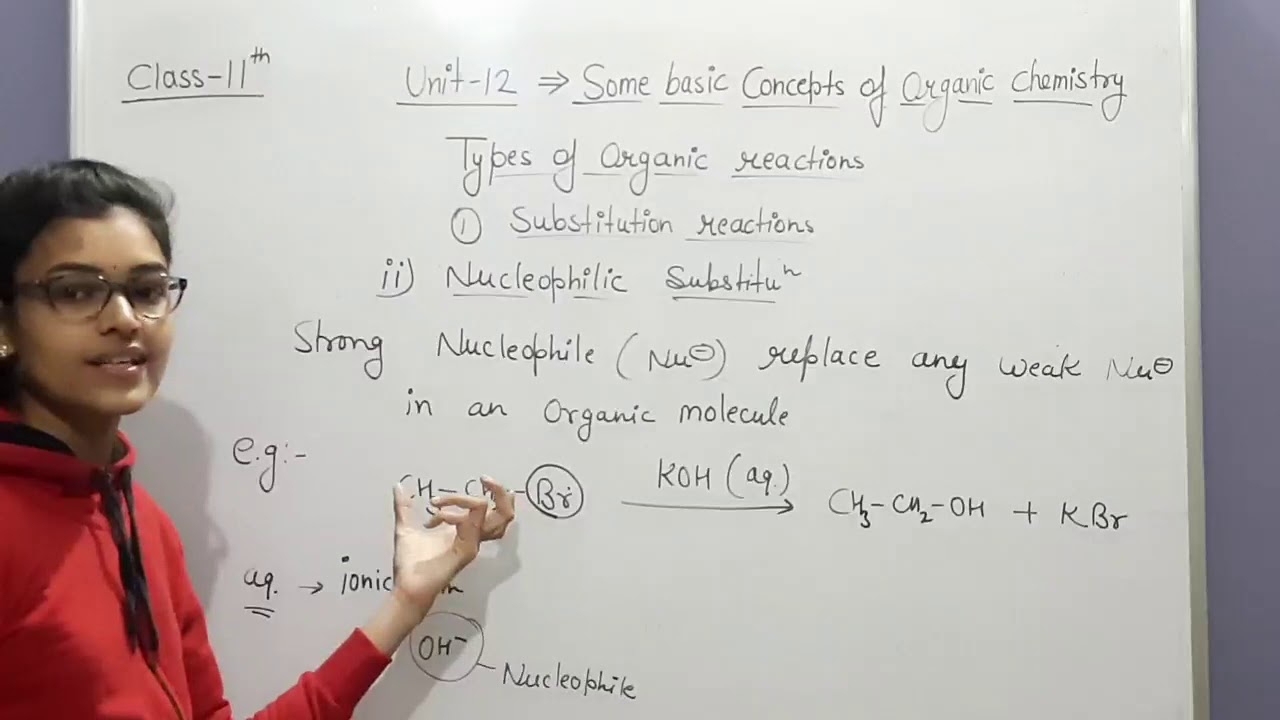 Class-11th
Unit-12 ⇒ Some basic Concepts of Organic Chemistry
Types of Organic reactions
① Substitution reactions
ii) Nucleophilic Substituⁿ
Strong Nucleophile (Nu⊖) replace any weak Nu⊖
in an Organic molecule
e.g:-
CH₃-CH -Br KOH (aq.) → CH₃-CH₂-OH + KBr
aq. → ionic
OH⁻ - Nucleophile